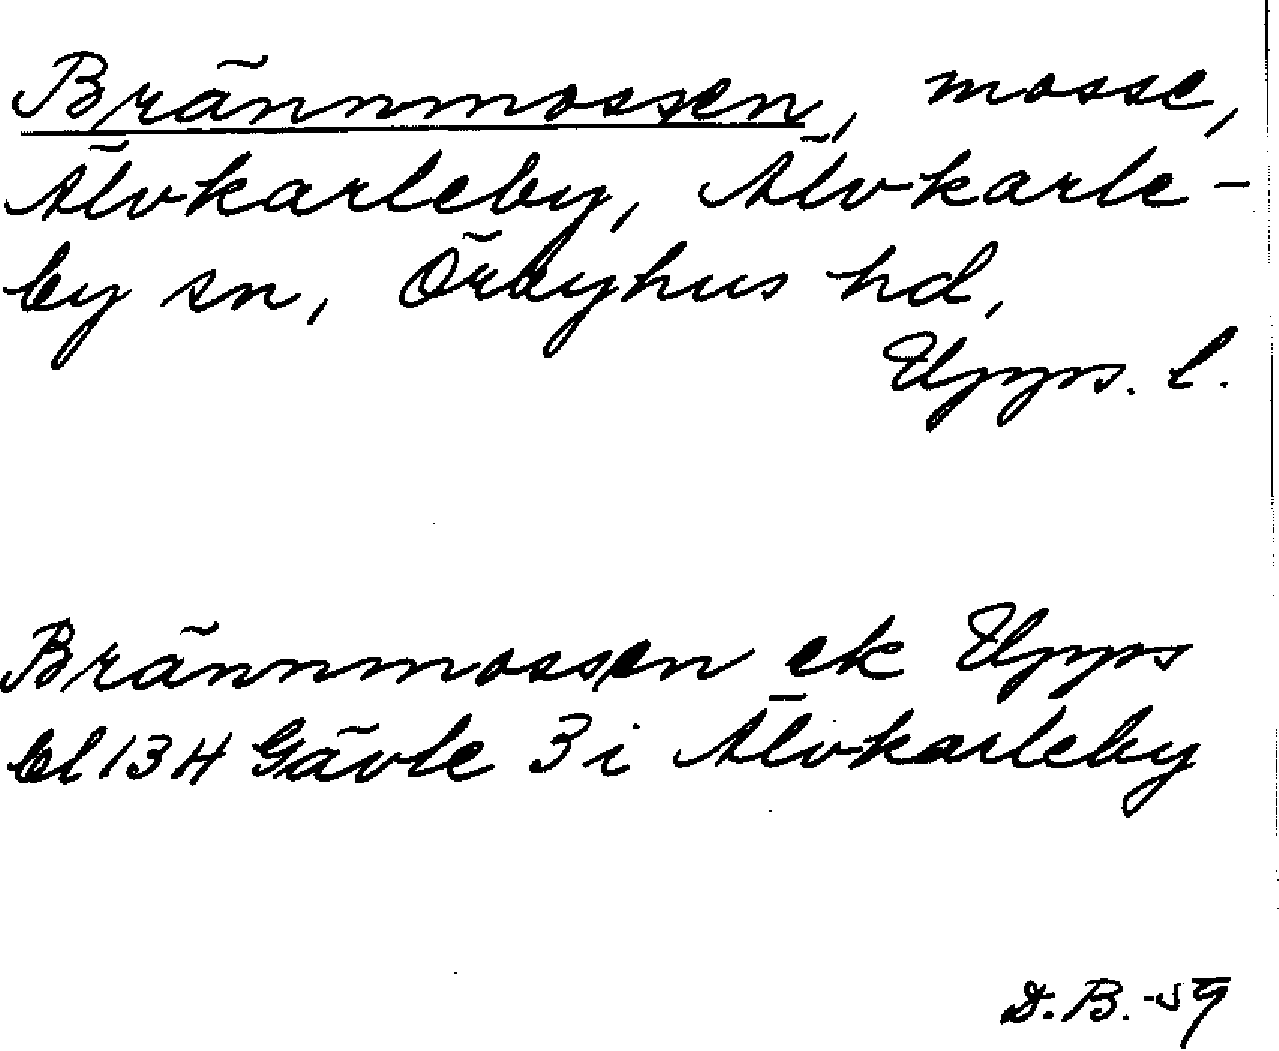 Brännmossen, mosse,
Älvkarleby, Älvkarle-
by sn, Örbyhus hd,
Upps. l.
Brännmossen ek Upps
bl 13 H Gävle 3 i Älvkarleby
D.B. -59